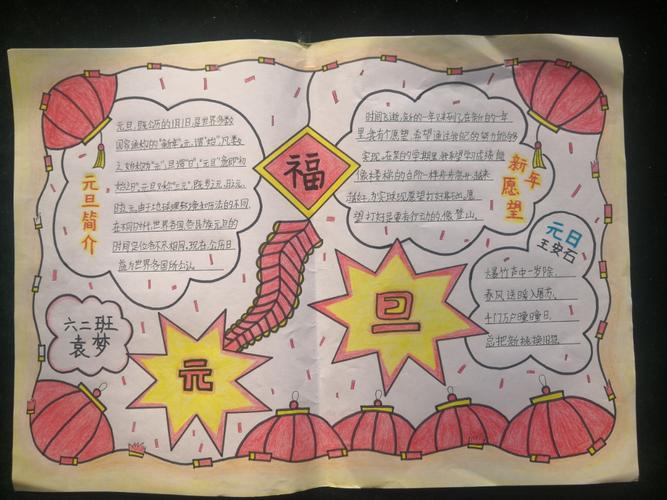 元旦简介
元旦,即公历的1月1日,是世界多数
国家通称的“新年”。元,谓“始”,凡数
之始称为“元”;旦,谓“日”;“元旦”意即“初
始之日”。元旦又称“三元”,即岁之元,月之元,
时之元。由于地理环境和历法的不同,
在不同时代,世界各国、各民族元旦的
时间定位各不相同。现在公历1月1日
益为世界各国所公认
福
新年愿望
时间飞逝,新的一年又来到了,在新的一年
里,我有个愿望,希望通过我的努力能够
实现。在新的学期里,我希望学习成绩能
像楼梯的台阶一样步步高升,越来
越好。为实现愿望打好基础,愿
望打好是要有行动的,像登山。
元日
王安石
爆竹声中一岁除,
春风送暖入屠苏。
千门万户曈曈日,
总把新桃换旧符
六二班
袁梦
元
旦